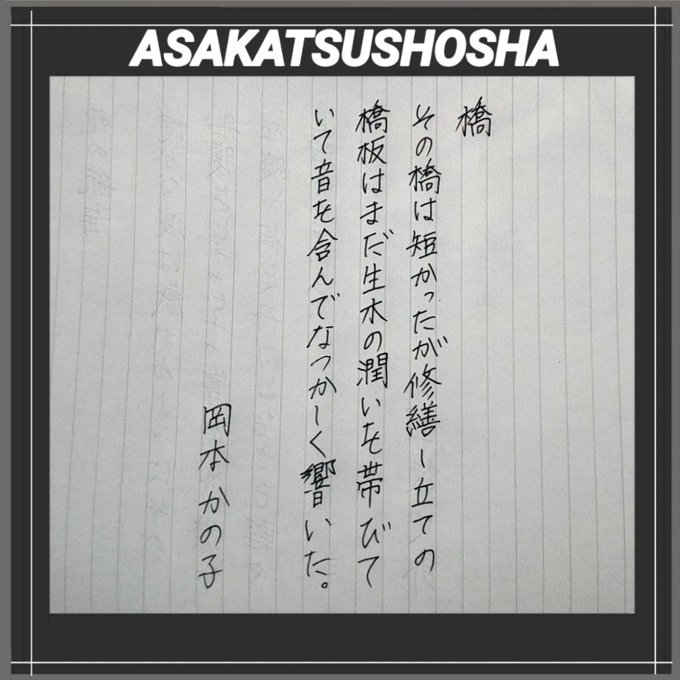 ASAKATSUSHOSHA
橋
その橋は短かったが修繕し立ての
橋板はまだ生木の潤いを帯びて
いて音を含んでなつかしく響いた。
岡本かの子